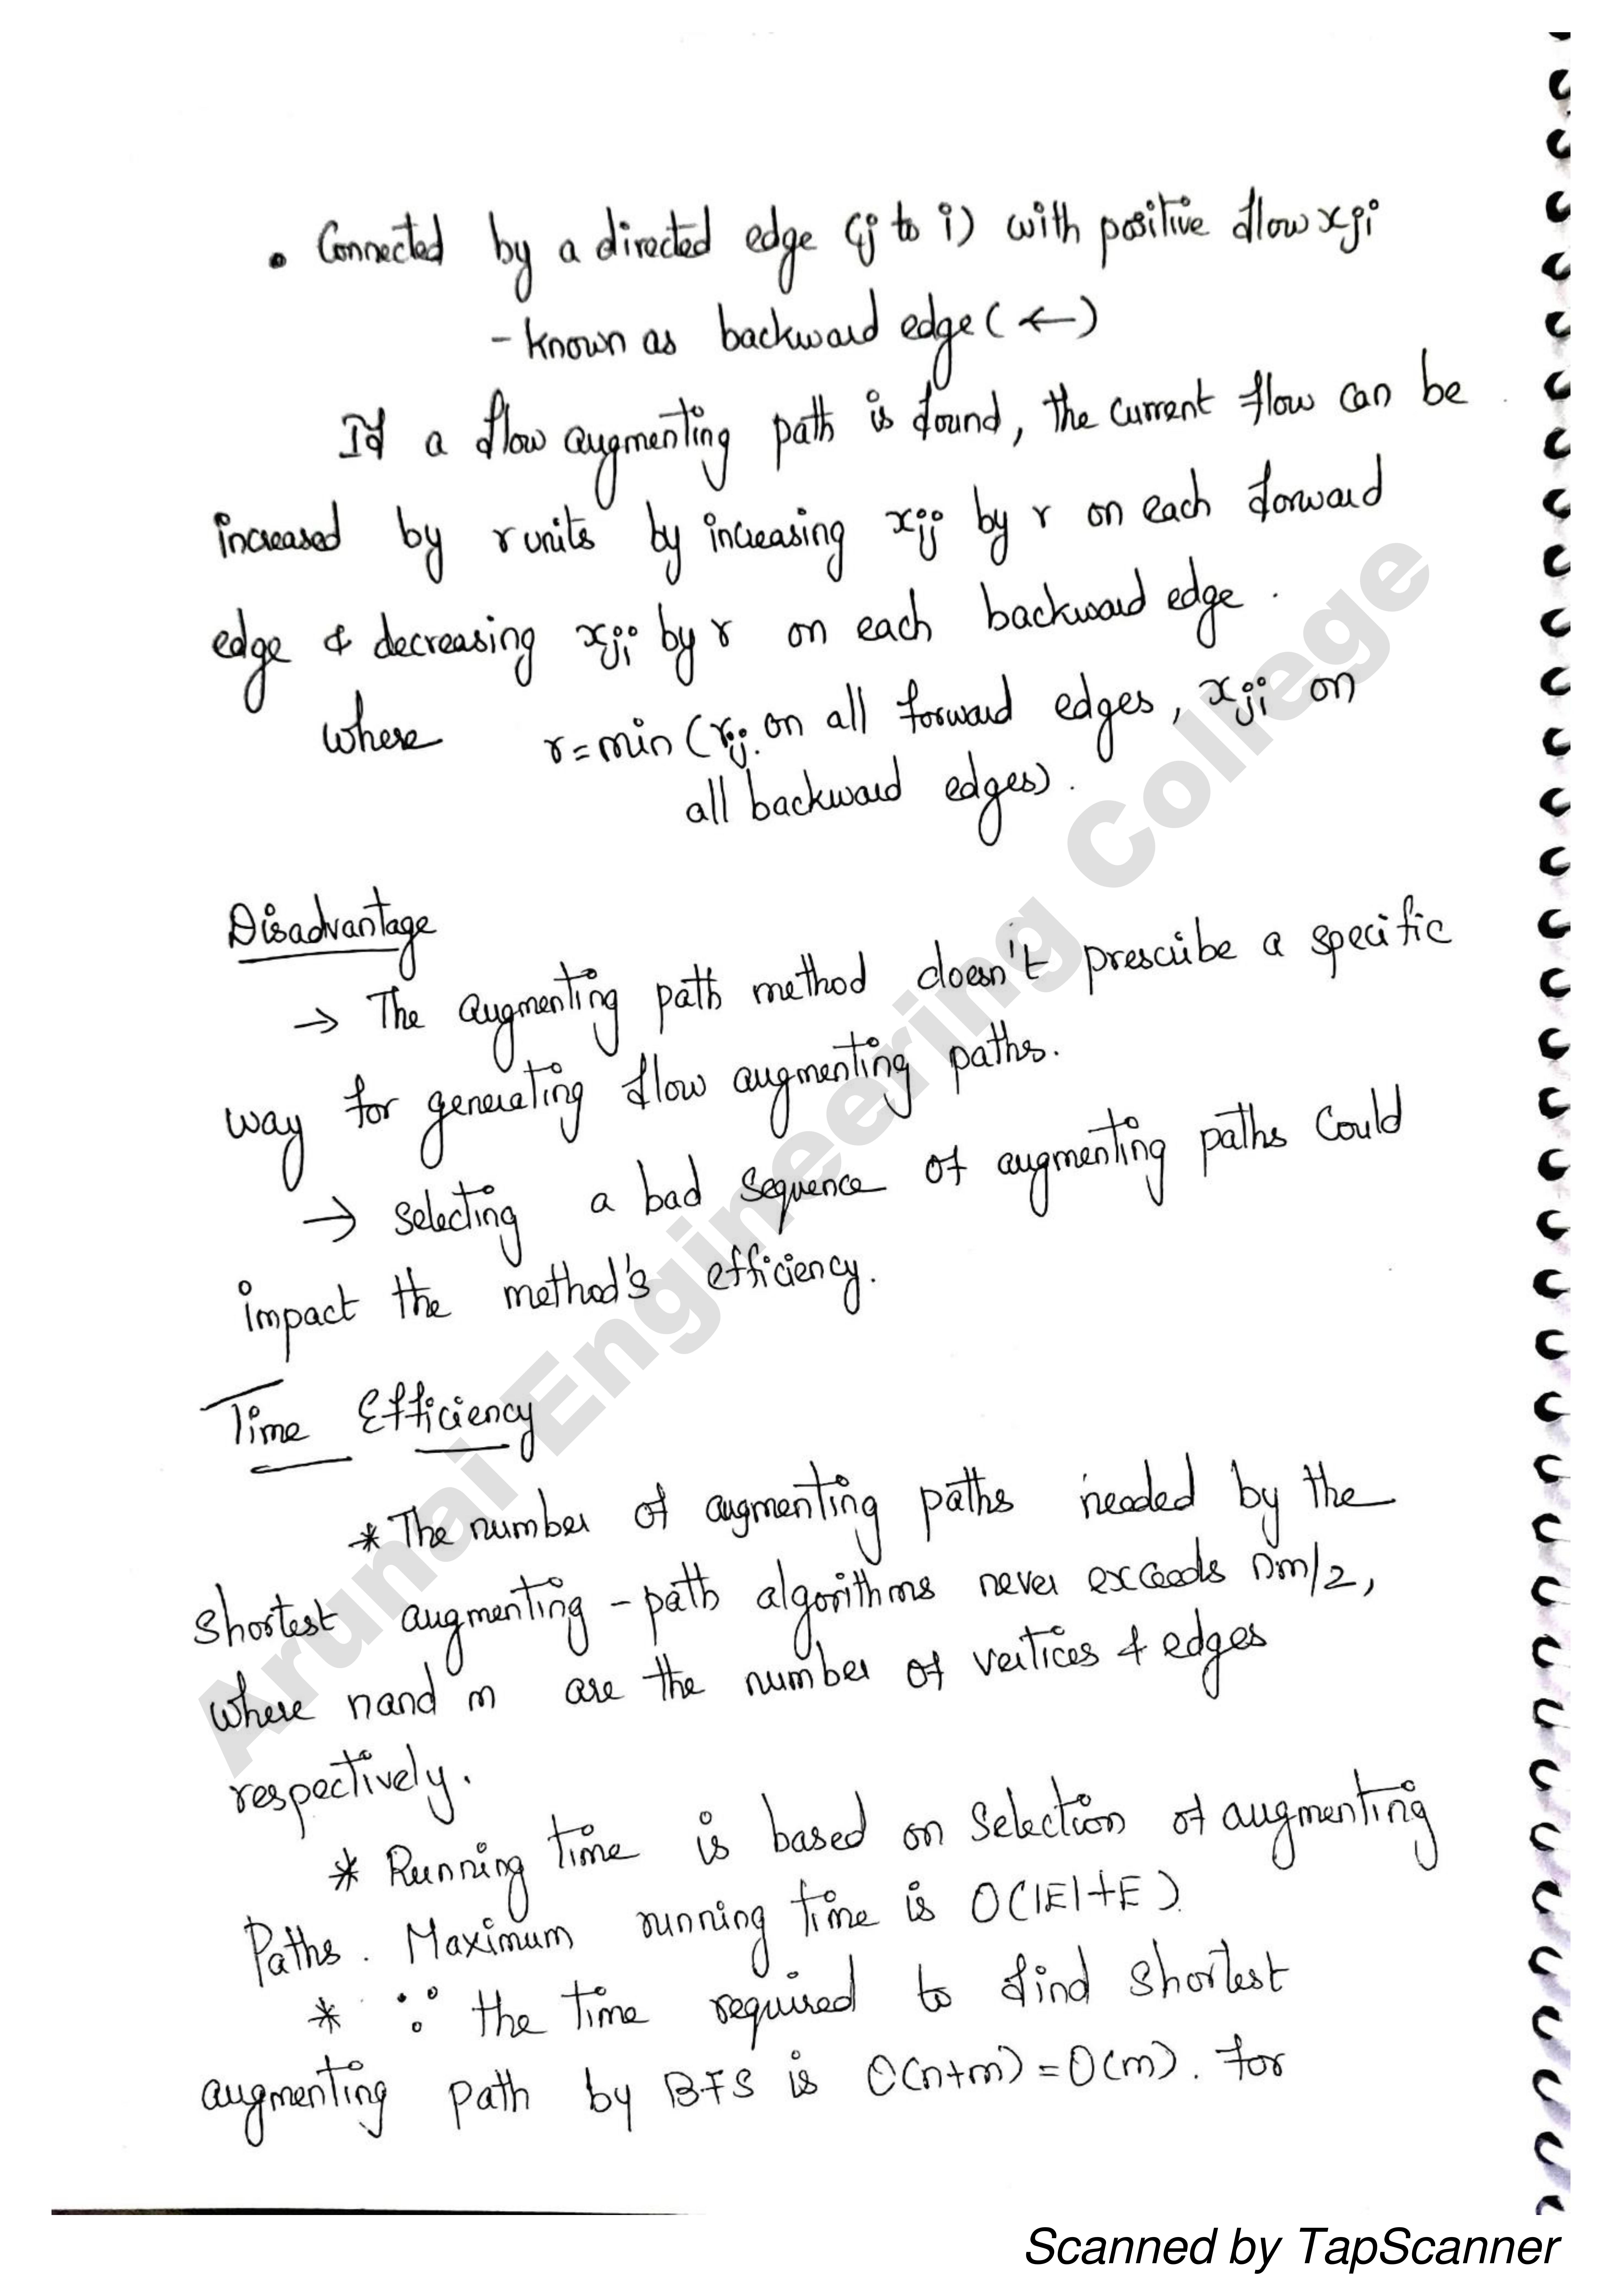 • Connected by a directed edge (j to i) with positive flow xji
- known as backward edge (←)
If a flow augmenting path is found, the current flow can be
increased by r units by increasing xij by r on each forward
edge & decreasing xji by r on each backward edge.
where r = min (rij on all forward edges, xji on
all backward edges).
Disadvantage
→ The augmenting path method doesn't prescribe a specific
way for generating flow augmenting paths.
→ selecting a bad sequence of augmenting paths could
impact the method's efficiency.
Time Efficiency
* The number of augmenting paths needed by the
shortest augmenting - path algorithms never exceeds nm/2,
where n and m are the number of vertices & edges
respectively.
* Running time is based on selection of augmenting
Paths. Maximum running time is O(|E|+E)
* ∵ the time required to find shortest
augmenting path by BFS is O(n+m) = O(m). For
Arunai Engineering College
Scanned by TapScanner